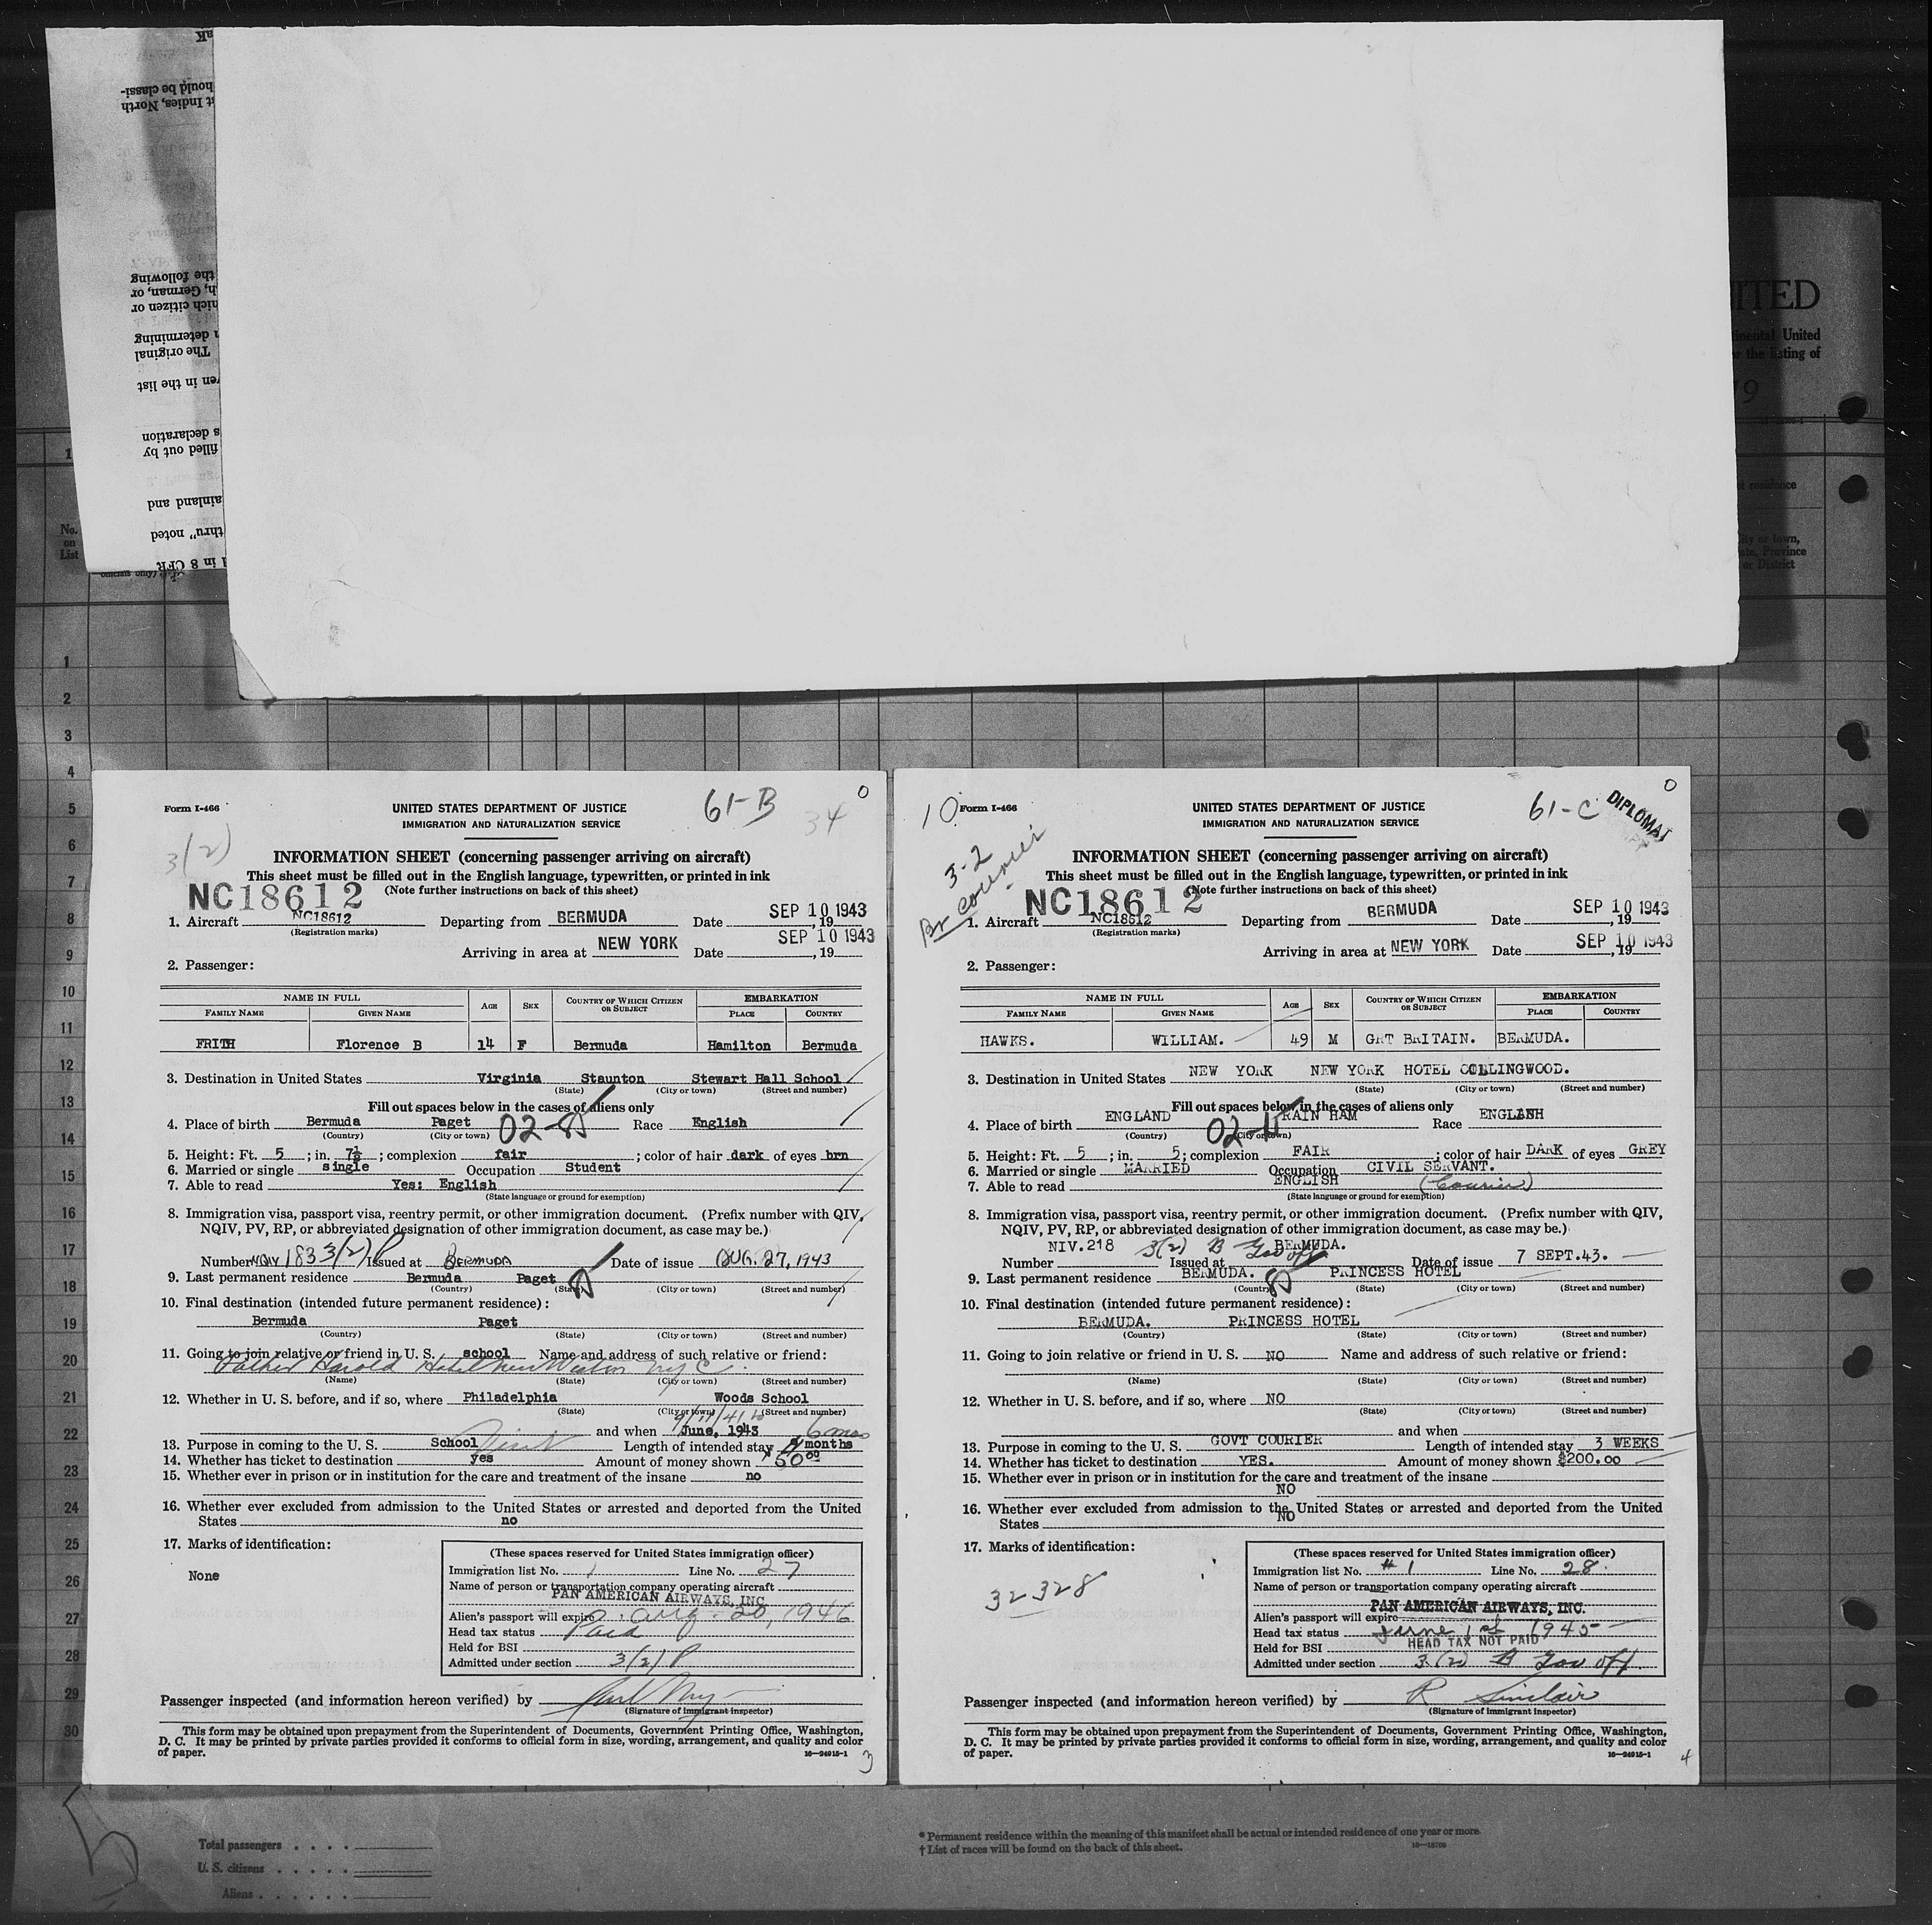 hould be classi-
t Indies, North
the following
h, German, or
hich citizen or
n determining
The original
ven in the list
s declaration
filled out by
ainland and
thru" noted
l in 8 CFR
ITED
inental United
r the listing of
19
No.
on
List
1
2
3
4
5
6
7
8
9
10
11
12
13
14
15
16
17
18
19
20
21
22
23
24
25
26
27
28
29
30
Form I-466
UNITED STATES DEPARTMENT OF JUSTICE
61-B
34
0
IMMIGRATION AND NATURALIZATION SERVICE
3(2)
INFORMATION SHEET (concerning passenger arriving on aircraft)
This sheet must be filled out in the English language, typewritten, or printed in ink
NC18612
(Note further instructions on back of this sheet)
1. Aircraft NC18612 Departing from BERMUDA Date SEP 10 1943, 19
(Registration marks)
Arriving in area at NEW YORK Date SEP 10 1943, 19
2. Passenger:
NAME IN FULL AGE SEX COUNTRY OF WHICH CITIZEN OR SUBJECT EMBARKATION
FAMILY NAME GIVEN NAME PLACE COUNTRY
FRITH Florence B 14 F Bermuda Hamilton Bermuda
3. Destination in United States Virginia Staunton Stewart Hall School
(State) (City or town) (Street and number)
Fill out spaces below in the cases of aliens only
4. Place of birth Bermuda Paget 02- Race English
(Country) (City or town)
5. Height: Ft. 5; in. 7½; complexion fair; color of hair dark of eyes brn
6. Married or single single Occupation Student
7. Able to read Yes: English
(State language or ground for exemption)
8. Immigration visa, passport visa, reentry permit, or other immigration document. (Prefix number with QIV,
NQIV, PV, RP, or abbreviated designation of other immigration document, as case may be.)
Number NQIV 1833 3(2) P Issued at BERMUDA Date of issue AUG. 27, 1943
9. Last permanent residence Bermuda Paget
(Country) (State) (City or town) (Street and number)
10. Final destination (intended future permanent residence):
Bermuda Paget
(Country) (State) (City or town) (Street and number)
11. Going to join relative or friend in U. S. school Name and address of such relative or friend:
Father Harold Hotel New Weston NYC
(Name) (State) (City or town) (Street and number)
12. Whether in U. S. before, and if so, where Philadelphia Woods School
(State) (City or town) (Street and number)
and when June, 1943
13. Purpose in coming to the U. S. School Visit Length of intended stay months 6 mos
14. Whether has ticket to destination yes Amount of money shown 50.00
15. Whether ever in prison or in institution for the care and treatment of the insane no
16. Whether ever excluded from admission to the United States or arrested and deported from the United
States no
17. Marks of identification:
None
(These spaces reserved for United States immigration officer)
Immigration list No. 1 Line No. 27
Name of person or transportation company operating aircraft
PAN AMERICAN AIRWAYS, INC.
Alien's passport will expire Aug. 20, 1946
Head tax status Paid
Held for BSI
Admitted under section 3(2) P
Passenger inspected (and information hereon verified) by
(Signature of immigrant inspector)
This form may be obtained upon prepayment from the Superintendent of Documents, Government Printing Office, Washington,
D. C. It may be printed by private parties provided it conforms to official form in size, wording, arrangement, and quality and color
of paper.
16—24915-1
3
10
Form I-466
UNITED STATES DEPARTMENT OF JUSTICE
61-C
DIPLOMAT
0
IMMIGRATION AND NATURALIZATION SERVICE
3-2
Br courier
INFORMATION SHEET (concerning passenger arriving on aircraft)
This sheet must be filled out in the English language, typewritten, or printed in ink
NC18612
(Note further instructions on back of this sheet)
1. Aircraft NC18612 Departing from BERMUDA Date SEP 10 1943, 19
(Registration marks)
Arriving in area at NEW YORK Date SEP 10 1943, 19
2. Passenger:
NAME IN FULL AGE SEX COUNTRY OF WHICH CITIZEN OR SUBJECT EMBARKATION
FAMILY NAME GIVEN NAME PLACE COUNTRY
HAWKS. WILLIAM. 49 M GRT BRITAIN. BERMUDA.
3. Destination in United States NEW YORK NEW YORK HOTEL COLLINGWOOD.
(State) (City or town) (Street and number)
Fill out spaces below in the cases of aliens only
4. Place of birth ENGLAND RAIN HAM 02- Race ENGLISH
(Country) (City or town)
5. Height: Ft. 5; in. 5; complexion FAIR; color of hair DARK of eyes GREY
6. Married or single MARRIED Occupation CIVIL SERVANT.
7. Able to read ENGLISH (Courier)
(State language or ground for exemption)
8. Immigration visa, passport visa, reentry permit, or other immigration document. (Prefix number with QIV,
NQIV, PV, RP, or abbreviated designation of other immigration document, as case may be.)
Number NIV.218 3(2) B Gov off Issued at BERMUDA. Date of issue 7 SEPT.43.
9. Last permanent residence BERMUDA. PRINCESS HOTEL
(Country) (State) (City or town) (Street and number)
10. Final destination (intended future permanent residence):
BERMUDA. PRINCESS HOTEL
(Country) (State) (City or town) (Street and number)
11. Going to join relative or friend in U. S. NO Name and address of such relative or friend:
(Name) (State) (City or town) (Street and number)
12. Whether in U. S. before, and if so, where NO
(State) (City or town) (Street and number)
and when
13. Purpose in coming to the U. S. GOVT COURIER Length of intended stay 3 WEEKS
14. Whether has ticket to destination YES. Amount of money shown $200.00
15. Whether ever in prison or in institution for the care and treatment of the insane
NO
16. Whether ever excluded from admission to the United States or arrested and deported from the United
States NO
17. Marks of identification:
32328
(These spaces reserved for United States immigration officer)
Immigration list No. #1 Line No. 28.
Name of person or transportation company operating aircraft
PAN AMERICAN AIRWAYS, INC.
Alien's passport will expire
Head tax status June 1st 1945
Held for BSI HEAD TAX NOT PAID
Admitted under section 3(2) B Gov off.
Passenger inspected (and information hereon verified) by R Sinclair
(Signature of immigrant inspector)
This form may be obtained upon prepayment from the Superintendent of Documents, Government Printing Office, Washington,
D. C. It may be printed by private parties provided it conforms to official form in size, wording, arrangement, and quality and color
of paper.
16—24915-1
4
5
Total passengers
U. S. citizens
Aliens
* Permanent residence within the meaning of this manifest shall be actual or intended residence of one year or more.
† List of races will be found on the back of this sheet.